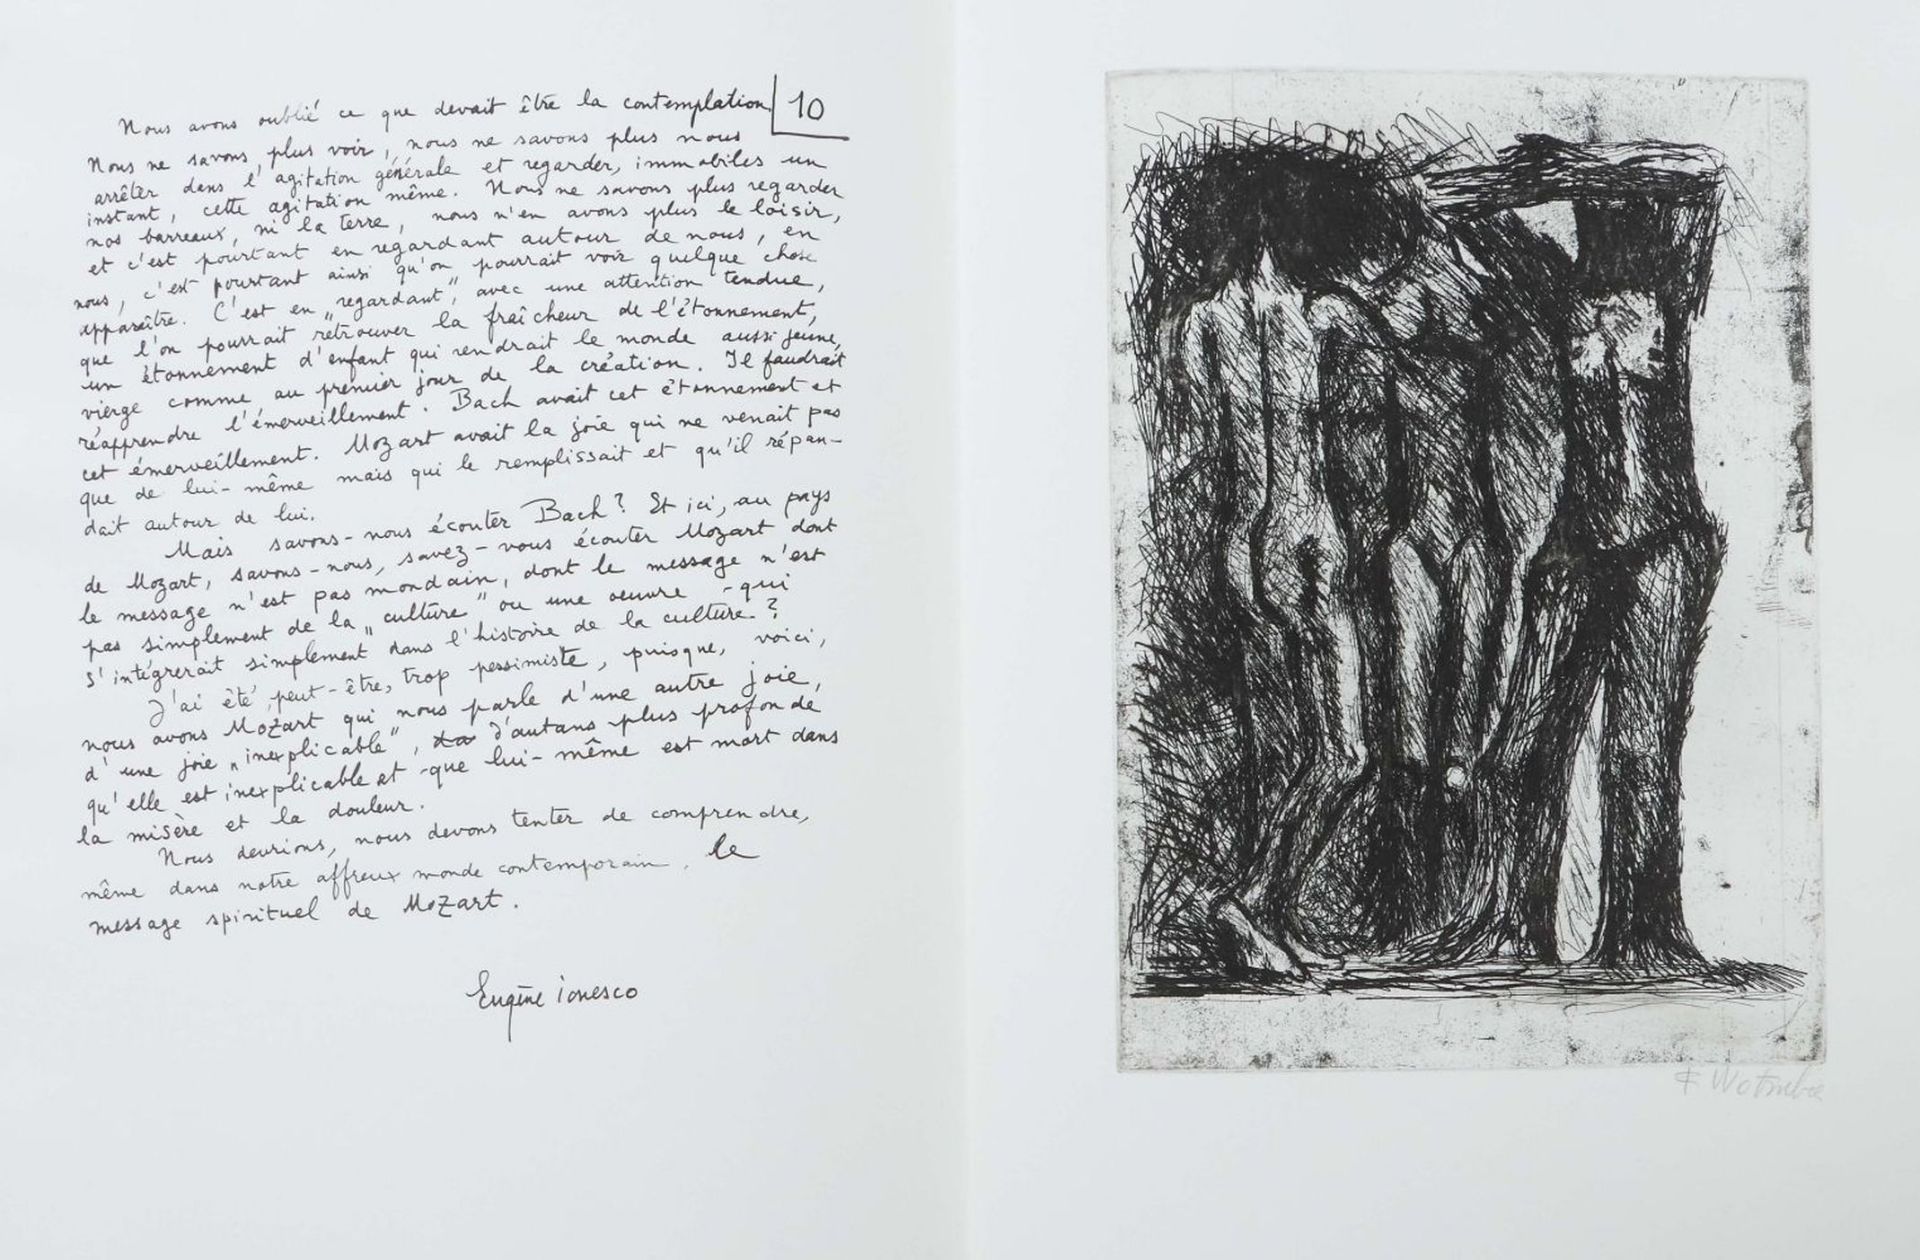 Nous avons oublié ce que devait être la contemplation. 10
Nous ne savons plus voir, nous ne savons plus nous
arrêter dans l'agitation générale et regarder, immobiles un
instant, cette agitation même. Nous ne savons plus regarder
nos barreaux, ni la terre, nous n'en avons plus le loisir,
et c'est pourtant en regardant autour de nous, en
nous, c'est pourtant ainsi qu'on pourrait voir quelque chose
apparaître. C'est en „regardant", avec une attention tendue,
que l'on pourrait retrouver la fraîcheur de l'étonnement,
un étonnement d'enfant qui rendrait le monde aussi jeune,
vierge comme au premier jour de la création. Il faudrait
réapprendre l'émerveillement. Bach avait cet étonnement et
cet émerveillement. Mozart avait la joie qui ne venait pas
que de lui-même mais qui le remplissait et qu'il répan-
dait autour de lui.
Mais savons-nous écouter Bach? Et ici, au pays
de Mozart, savons-nous, savez-vous écouter Mozart dont
le message n'est pas mondain, dont le message n'est
pas simplement de la „culture" ou une oeuvre -qui
s'intégrerait simplement dans l'histoire de la culture.?
J'ai été, peut-être, trop pessimiste, puisque, voici,
nous avons Mozart qui nous parle d'une autre joie,
d'une joie „inexplicable", d'autans plus profonde
qu'elle est inexplicable et -que lui-même est mort dans
la misère et la douleur.
Nous devrions, nous devons tenter de comprendre,
même dans notre affreux monde contemporain, le
message spirituel de Mozart.
Eugène Ionesco
F Wotruba